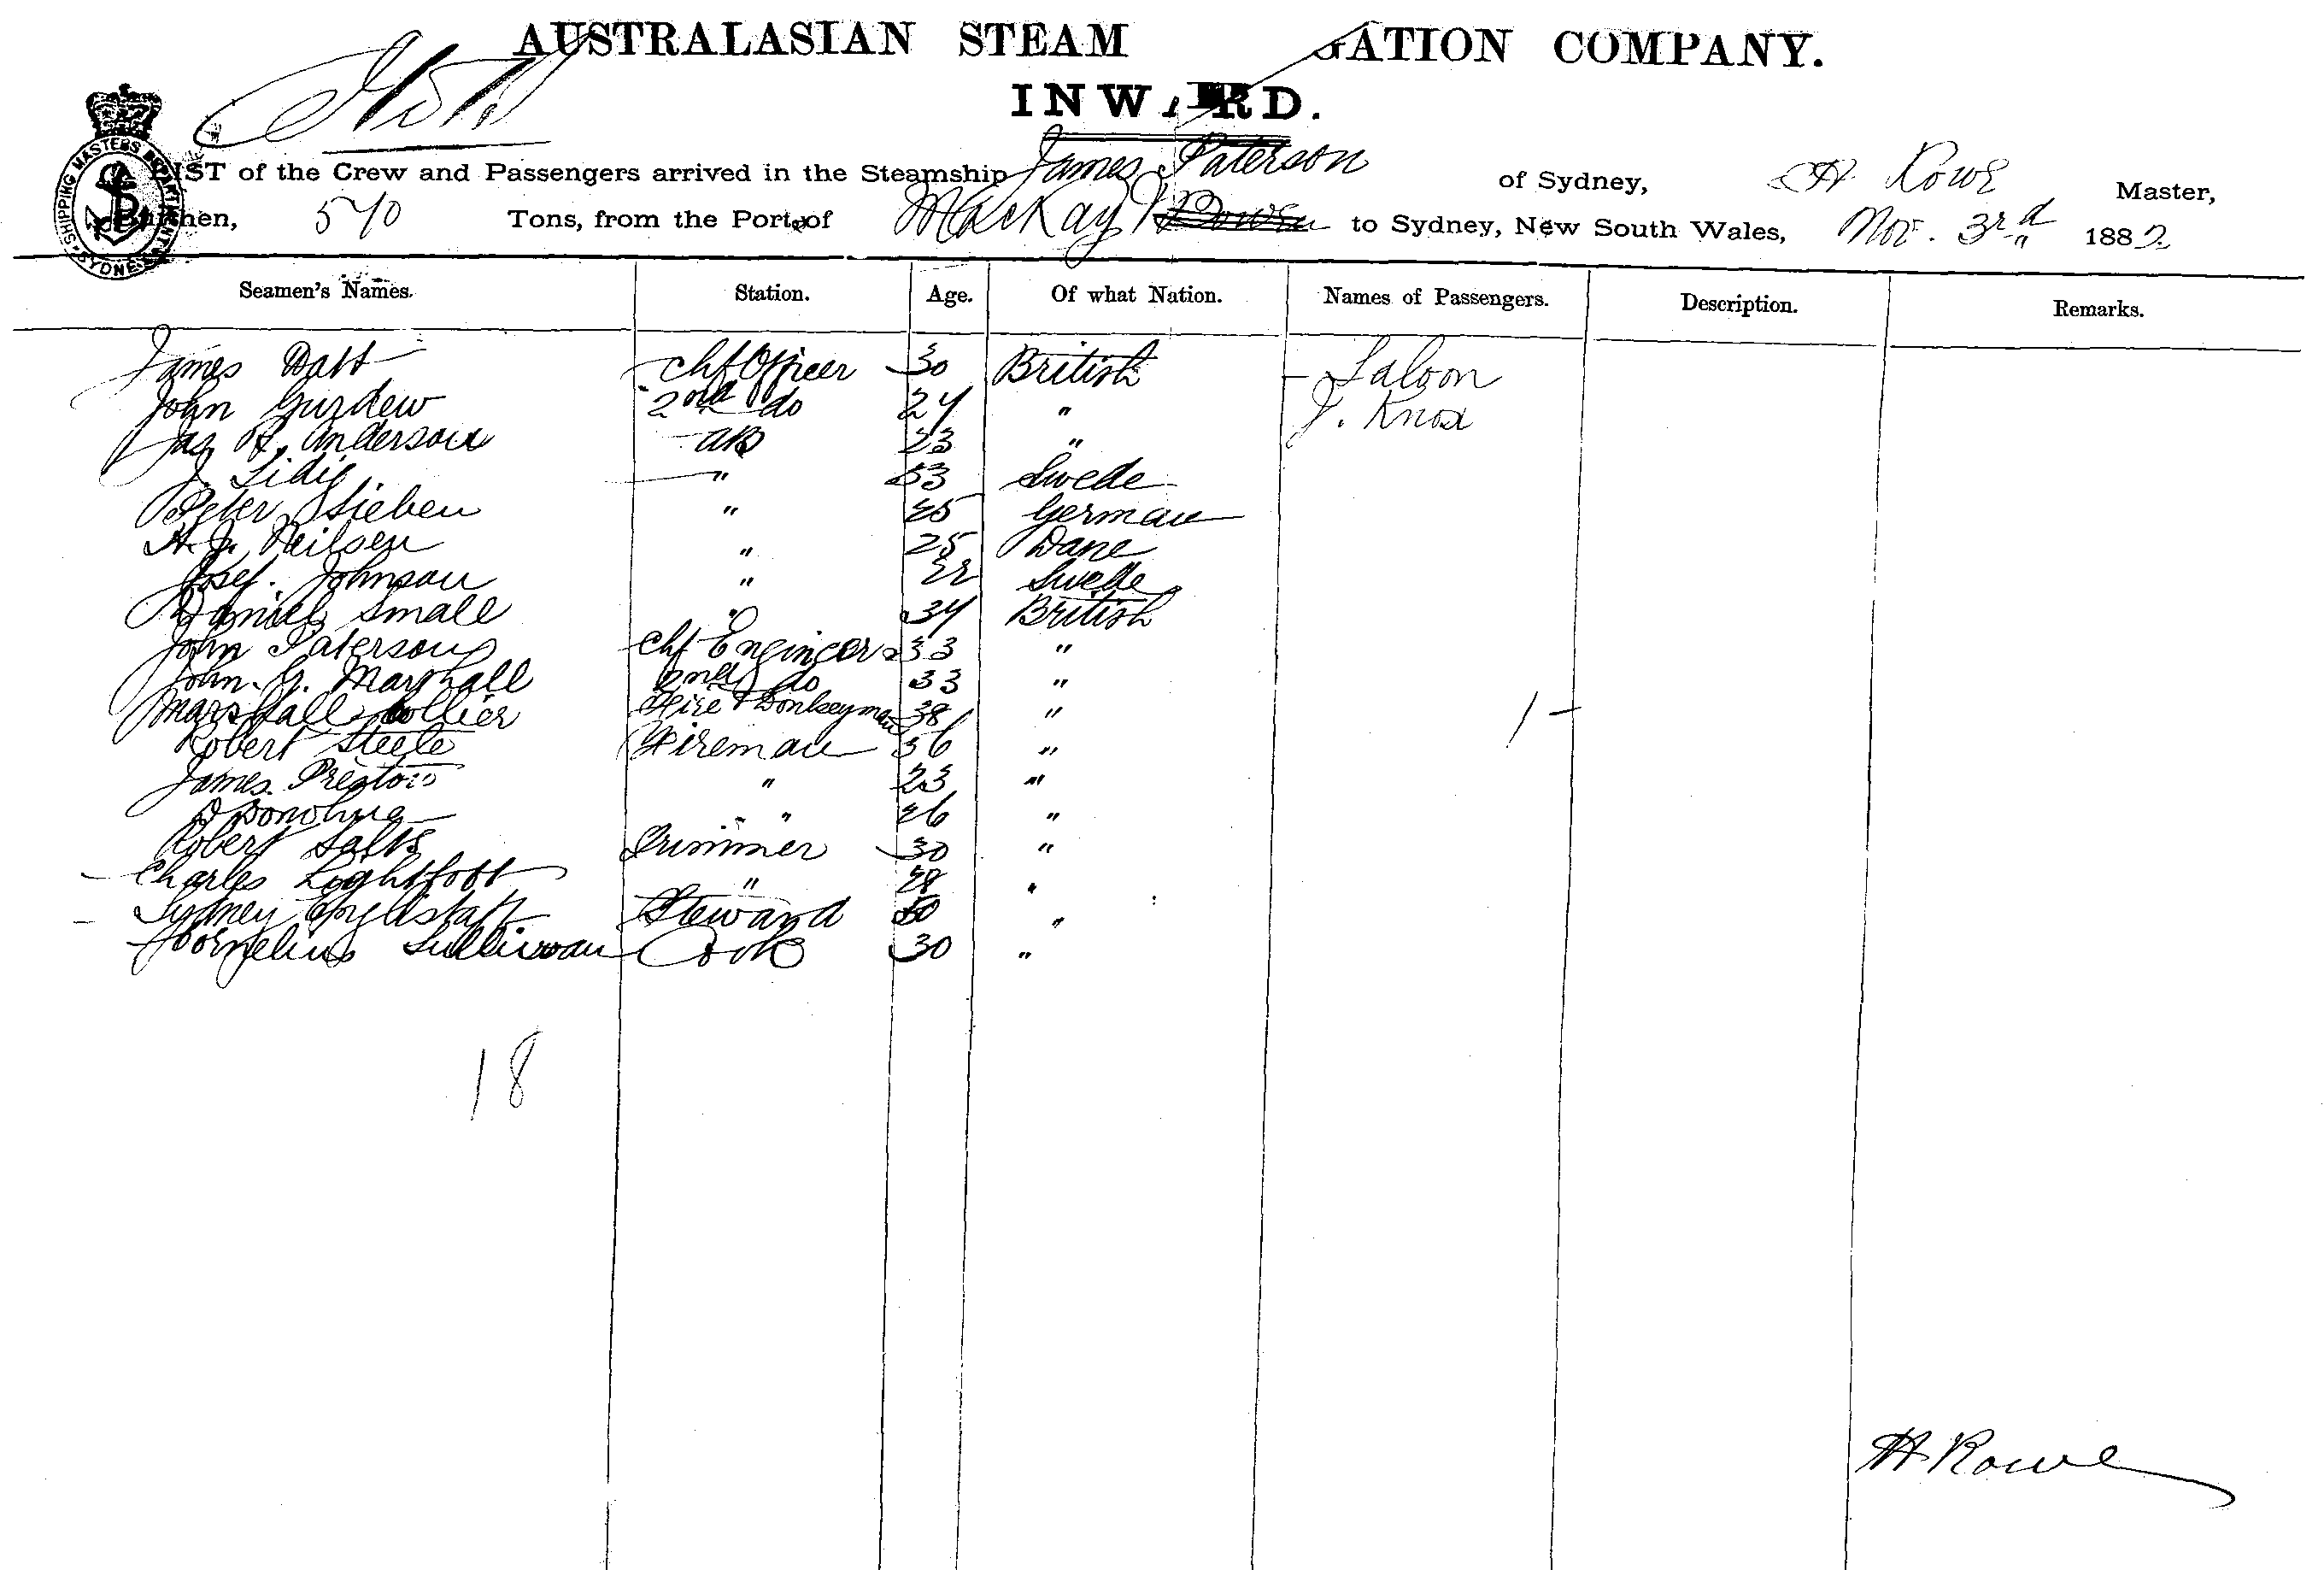 AUSTRALASIAN STEAM GATION COMPANY.
INWARD.
LIST of the Crew and Passengers arrived in the Steamship James Paterson of Sydney, H Rowe Master,
Burthen, 540 Tons, from the Port of MacKay Bowen to Sydney, New South Wales, Nov. 3rd 1882
SHIPPING MASTERS DEPARTMENT SYDNEY
Seamen's Names. Station. Age. Of what Nation. Names of Passengers. Description. Remarks.
James Watt Chf Officer 30 British Saloon
John Gurdew 2nd do 24 " J. Knox
Jas H. Anderson AB 23 "
J. Sidig " 53 Swede
Peter Stieben " 25 German
A. J. Neilsen " 25 Dane
Josef. Johnson " 22 Swede
Daniel Small " 34 British
John Paterson Chf Engineer 33 "
John. G. Marshall 2nd do 33 "
Marshall Collier Fire & Donkeyman 38 "
Robert Steele Fireman 36 "
James Preston " 23 "
D Donohue " 26 "
Robert Salts Trimmer 30 "
Charles Lightfoot " 28 "
Sydney Steward 30 "
Cornelius Sullivan Cook 30 "
1 -
18
H Rowe